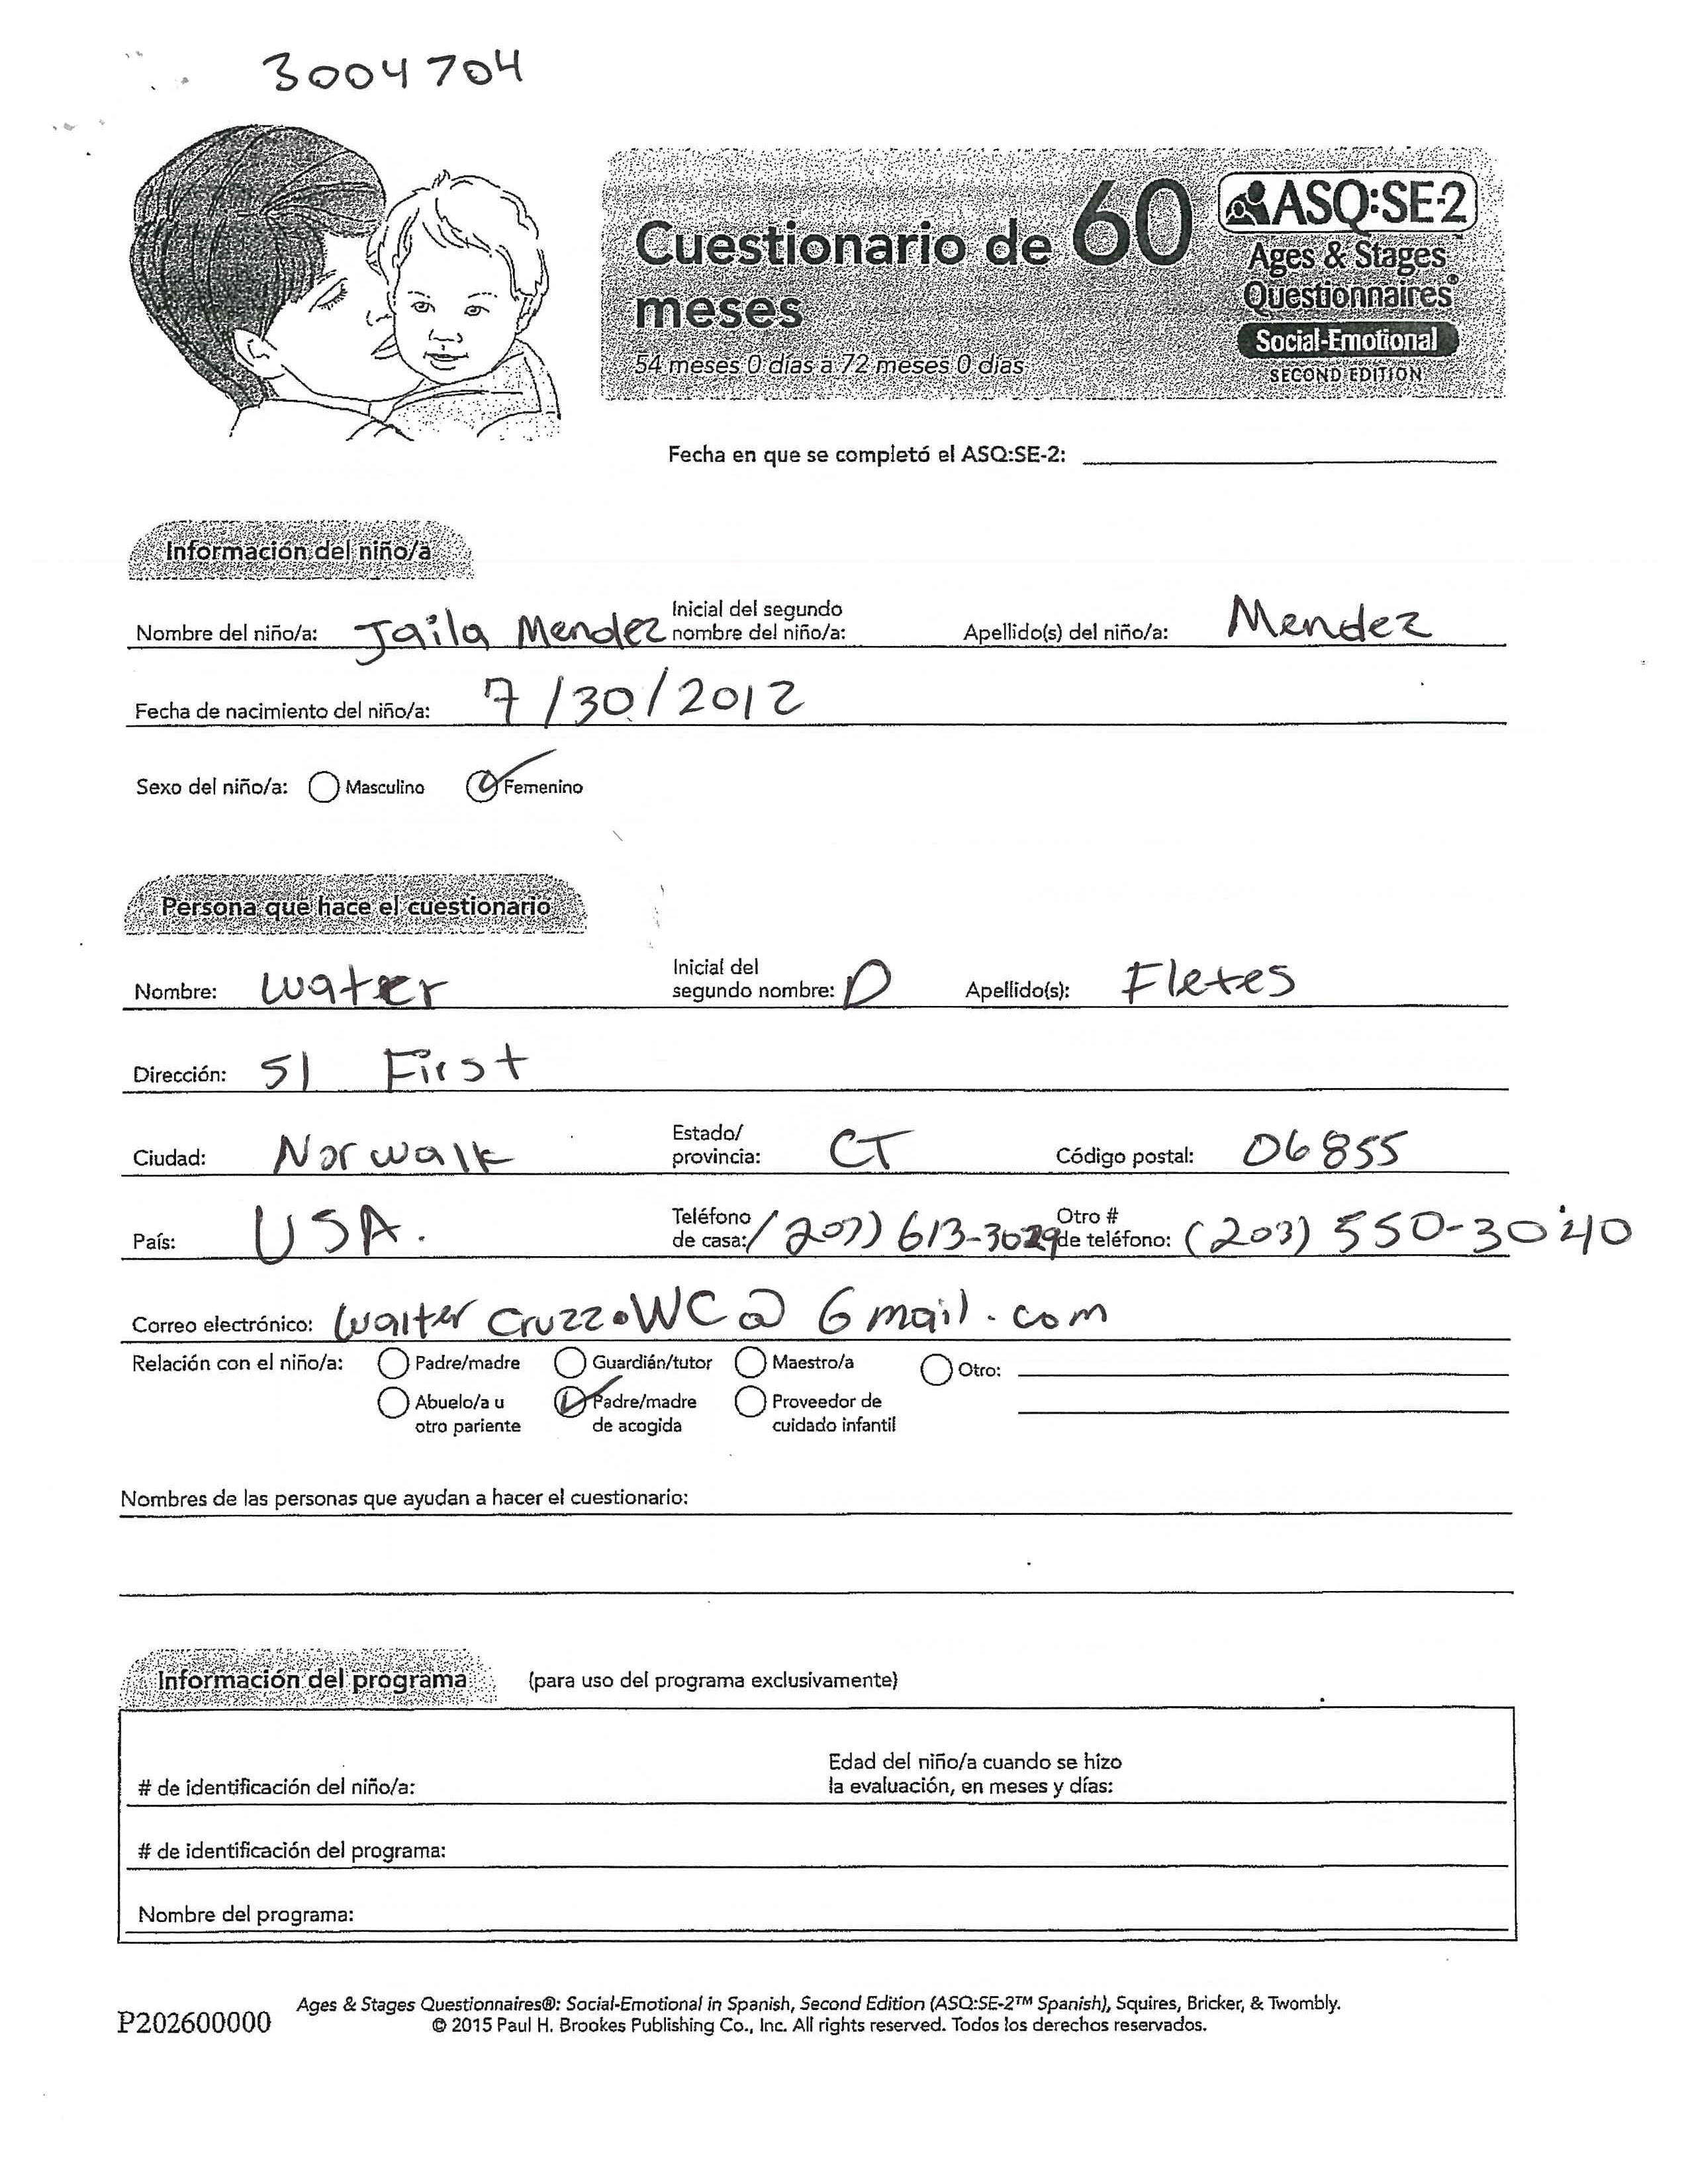 3004704
Cuestionario de 60 meses
54 meses 0 días a 72 meses 0 días
ASQ:SE-2™
Ages & Stages Questionnaires®
Social-Emotional
SECOND EDITION
Fecha en que se completó el ASQ:SE-2:
Información del niño/a
Nombre del niño/a: Jaila Mendez Inicial del segundo nombre del niño/a: Apellido(s) del niño/a: Mendez
Fecha de nacimiento del niño/a: 7/30/2012
Sexo del niño/a: Masculino Femenino
Persona que hace el cuestionario
Nombre: Inicial del segundo nombre: D Apellido(s): Fletes
Dirección: 51 First
Ciudad: Norwalk Estado/provincia: CT Código postal: 06855
País: USA. Teléfono de casa: Otro # de teléfono: (203) 550-3040
Correo electrónico: walter cruzz.WC@Gmail.com
Relación con el niño/a: Padre/madre Guardián/tutor Maestro/a Otro:
Abuelo/a u otro pariente Padre/madre de acogida Proveedor de cuidado infantil
Nombres de las personas que ayudan a hacer el cuestionario:
Información del programa (para uso del programa exclusivamente)
# de identificación del niño/a: Edad del niño/a cuando se hizo la evaluación, en meses y días:
# de identificación del programa:
Nombre del programa:
P202600000
Ages & Stages Questionnaires®: Social-Emotional in Spanish, Second Edition (ASQ:SE-2™ Spanish), Squires, Bricker, & Twombly.
© 2015 Paul H. Brookes Publishing Co., Inc. All rights reserved. Todos los derechos reservados.